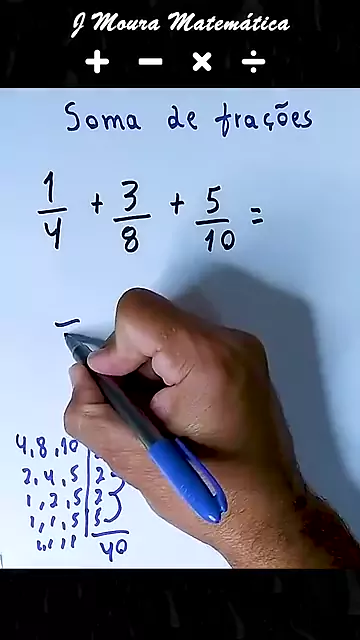 J Moura Matemática
+ − × ÷
Soma de frações
1/4 + 3/8 + 5/10 =
4, 8, 10
2, 4, 5 | 2
1, 2, 5 | 2
1, 1, 5 | 5
1, 1, 1 | 40